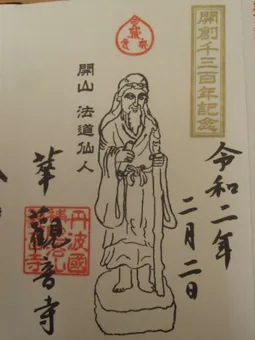 開創千三百年記念
令和二年
二月二日
開山 法道仙人
華觀音寺
丹波國